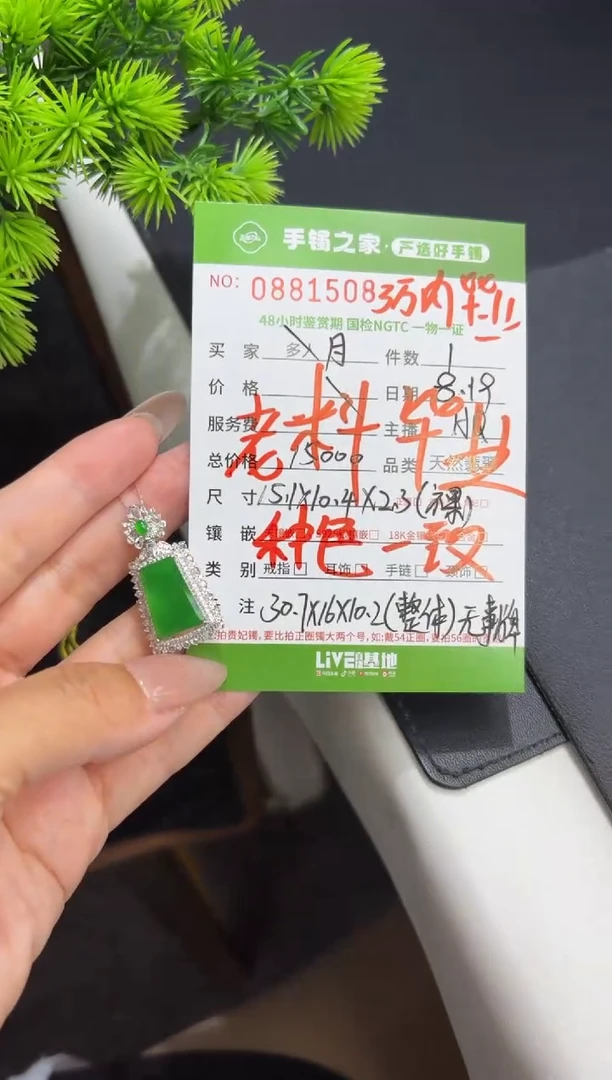 手镯之家·严选好手镯
NO: 0881508
3万内毕业
48小时鉴赏期 国检NGTC 一物一证
买 家 月 件数 1
价 格 日期 8.19
服务费 主播
老料 毕业
总价格 15000 品类 天然翡翠
尺 寸 15.1X10.4X2.3(裸)
镶 嵌 18K金
种色一致
类 别 戒指 耳饰 手链 颈饰
注 30.7X16X10.2(整体)无事牌
拍贵妃镯,要比拍正圈镯大两个号,如:戴54正圈,要拍56圈
LiVE 基地